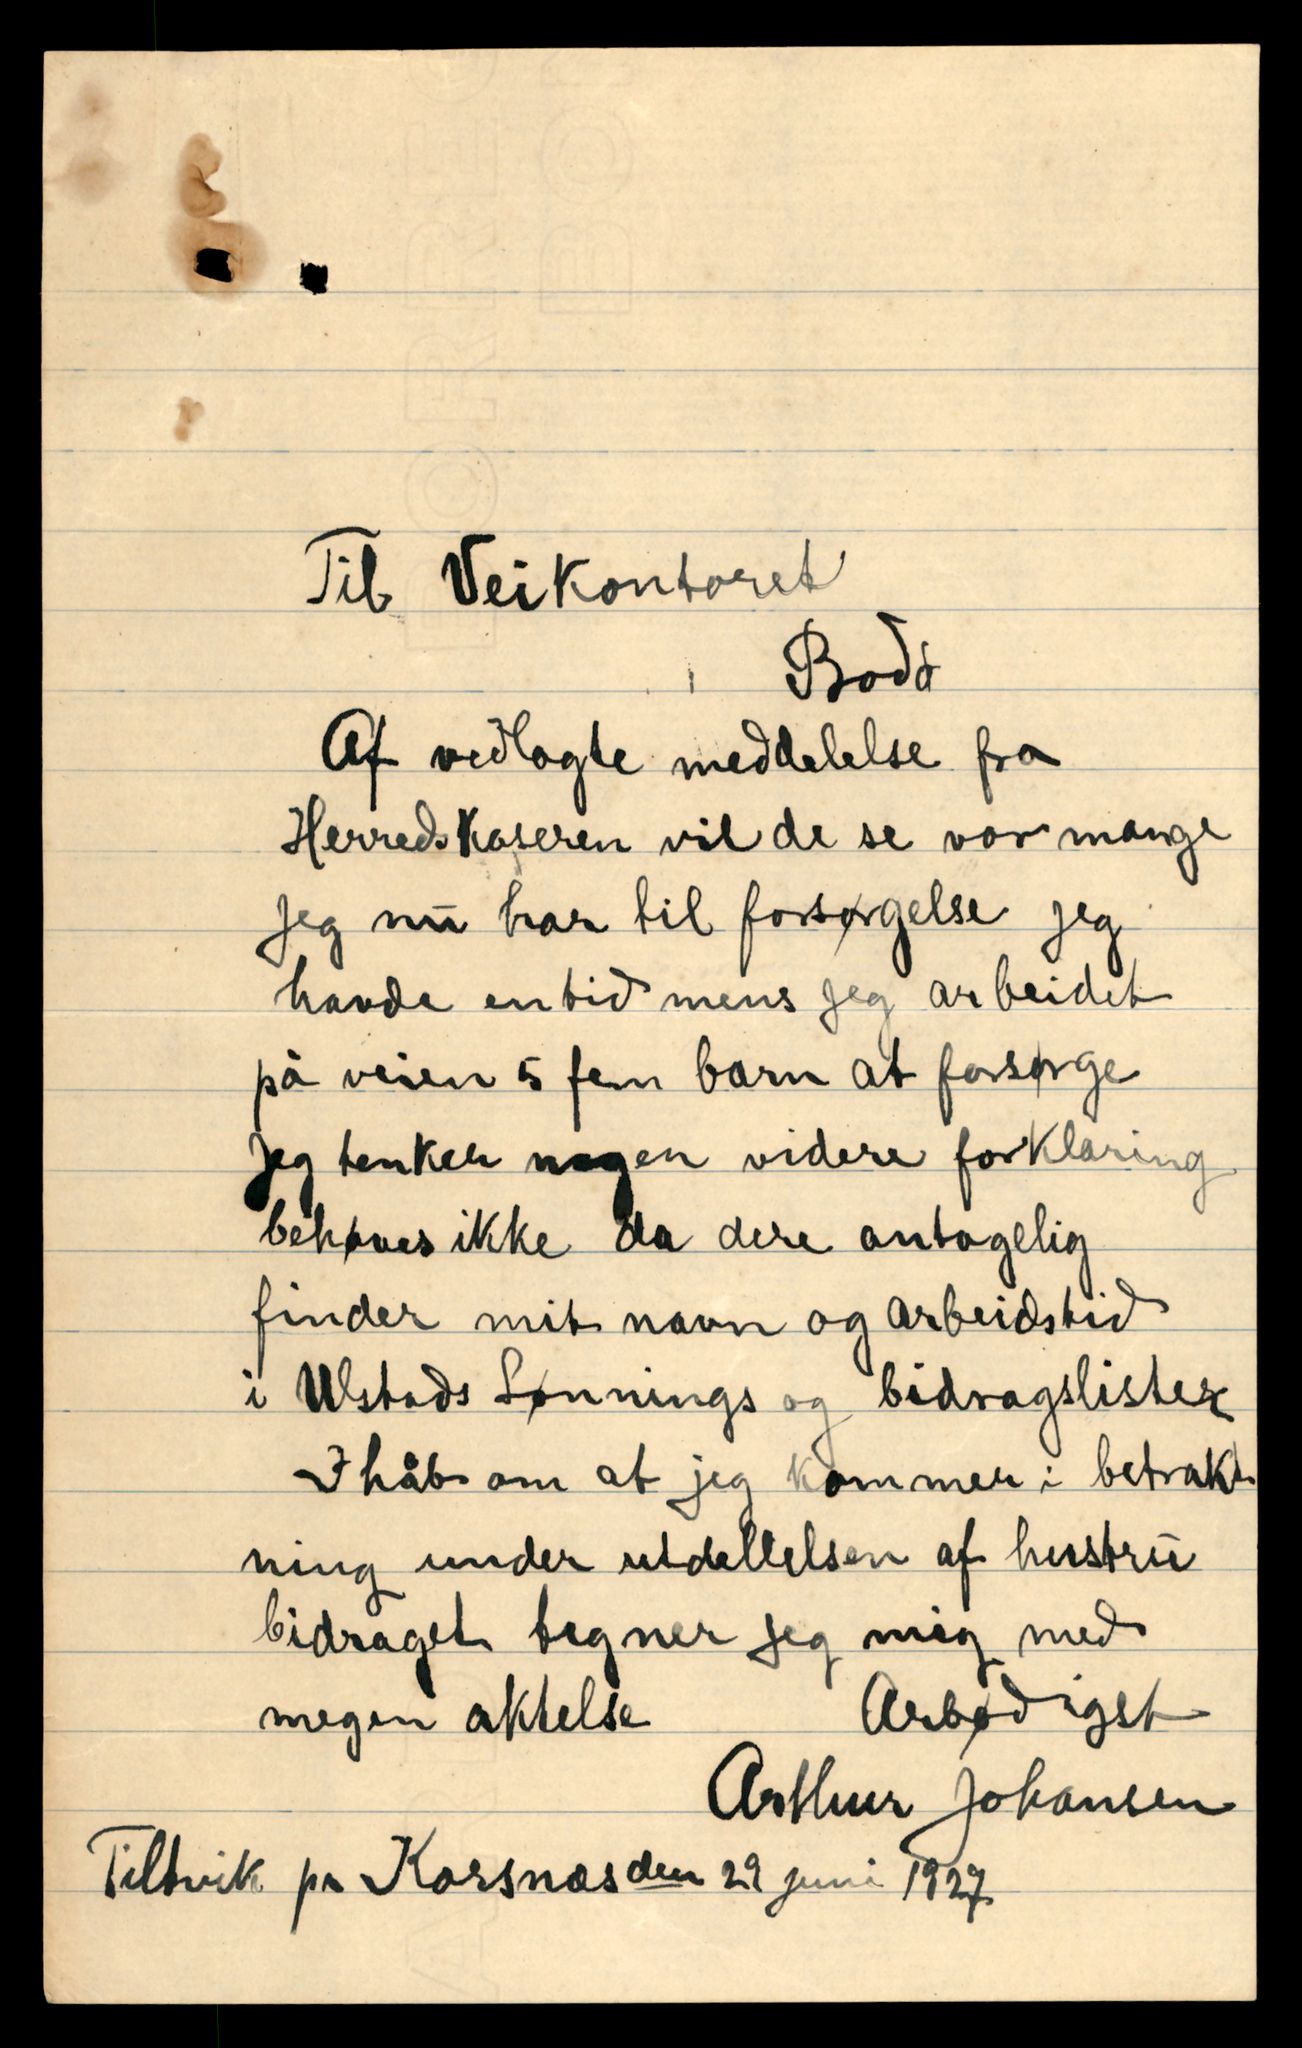 Til Veikontoret
Bodø
Af vedlagte meddelelse fra
Herredskaseren vil de se vor mange
jeg nu har til forsørgelse jeg
havde en tid mens jeg arbeidet
på veien 5 fem barn at forsørge
jeg tenker nogen videre forklaring
behøves ikke da dere antagelig
finder mit navn og arbeidstid
i Ulstads Lønnings og bidragslister
I håb om at jeg kommer i betrakt
ning under utdellelsen af hustru
bidraget tegner jeg mig med
megen aktelse Arbødigst
Arthur Johansen
Tiltvik pr Korsnæs den 29 juni 1927